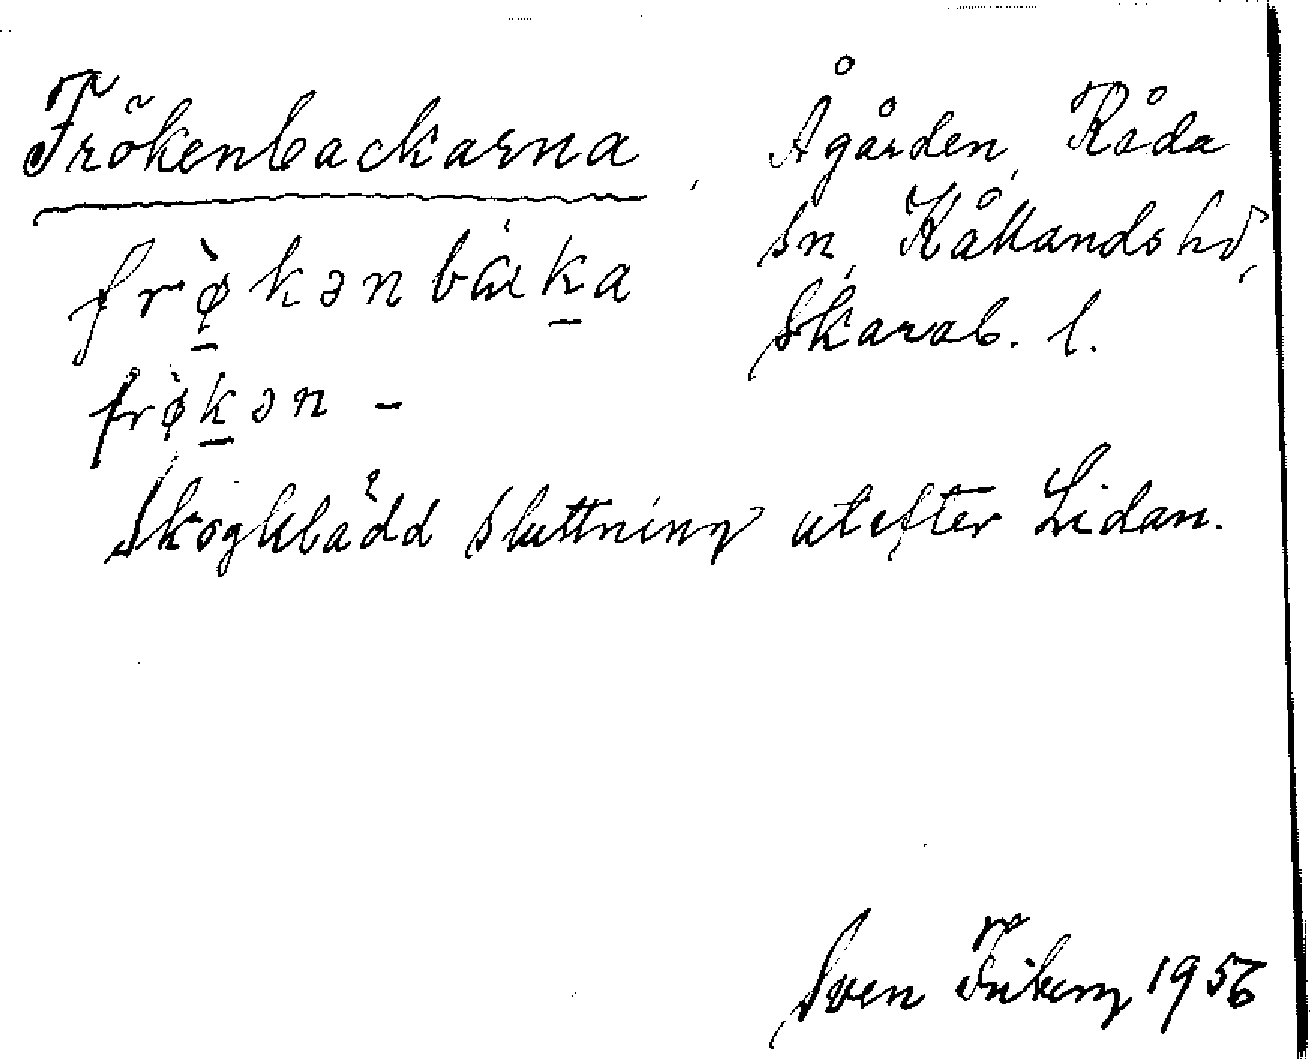 Frökenbackarna, Ågården, Råda
sn, Kållands hd,
frø̀kən bàka
Skarab. l.
frø̀kən –
Skogklädd sluttning utefter Lidan.
Sven Friberg 1956